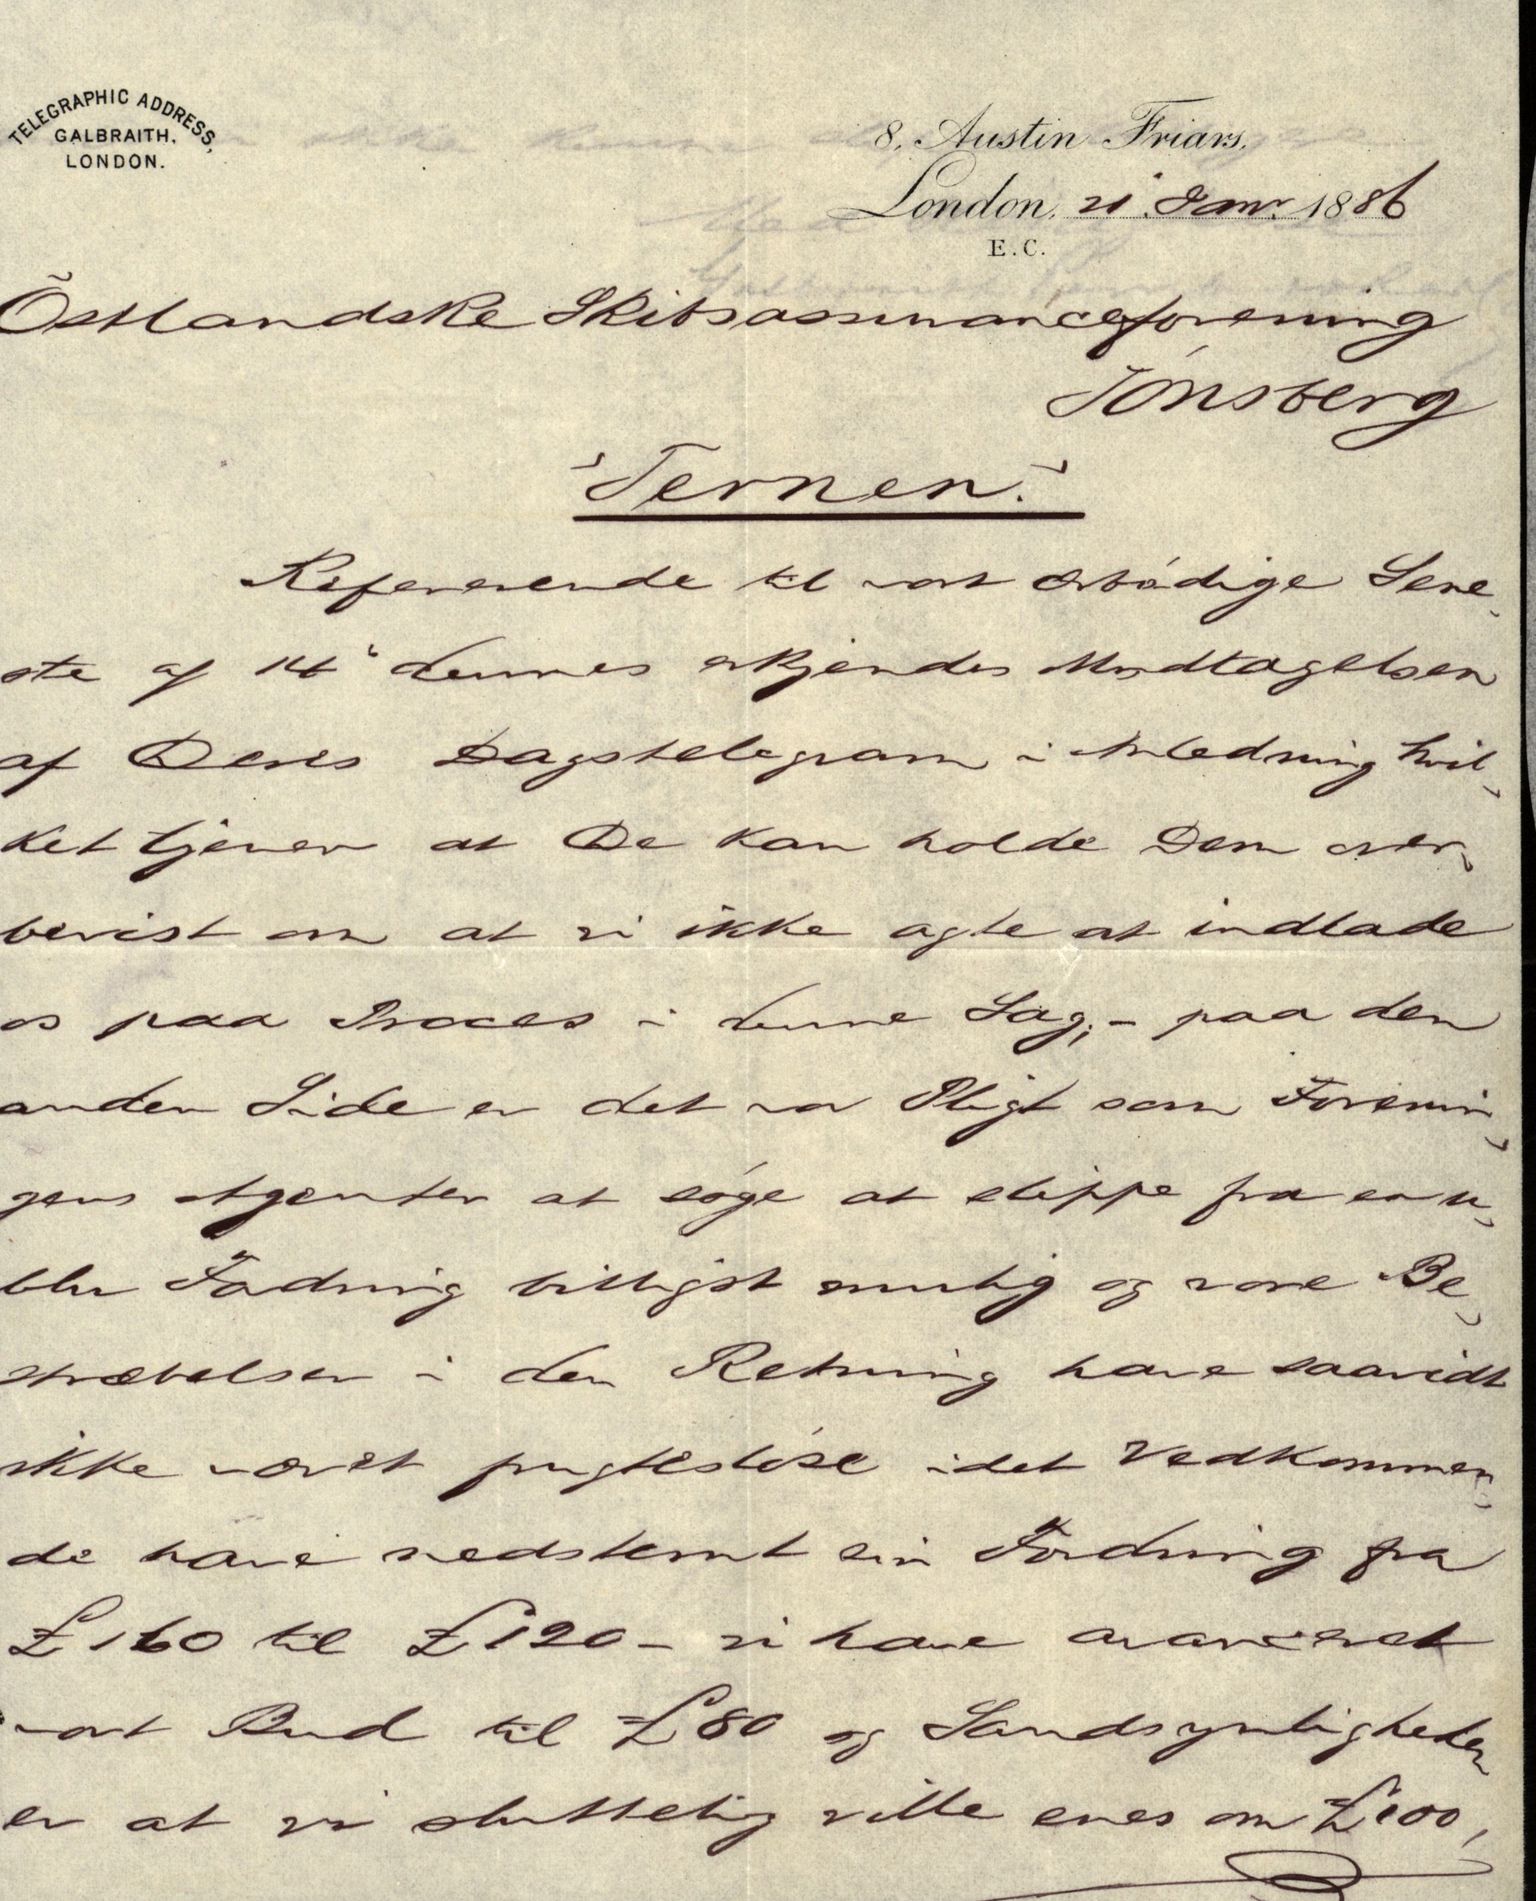 TELEGRAPHIC ADDRESS,
GALBRAITH.
LONDON.
8, Austin Friars,
London, 21 Janr. 1886
E.C.
Östlandske Skibsassuranceforening
Tönsberg
"Ternen."
Refererende til vort ærbødige Sene-
ste af 14' dennes erkjendes Modtagelsen
af Deres Dagstelegram i Anledning hvil-
ket tjener at De kan holde Dem over-
bevist om at vi ikke agte at indlade
os paa Proces i denne Sag; - paa den
anden Side er det vor Pligt som Forenin-
gens Agenter at søge at slippe fra en u-
blu Fodring billigst mulig og vore Be-
stræbelser i den Retning have saavidt
ikke været frugtesløse idet Vedkommen-
de have nedstemt sin Fordring fra
£160 til £120 - vi have avanceret
vort Bud til £80 og Sandsynligheden
er at vi sluttelig ville enes om £100,